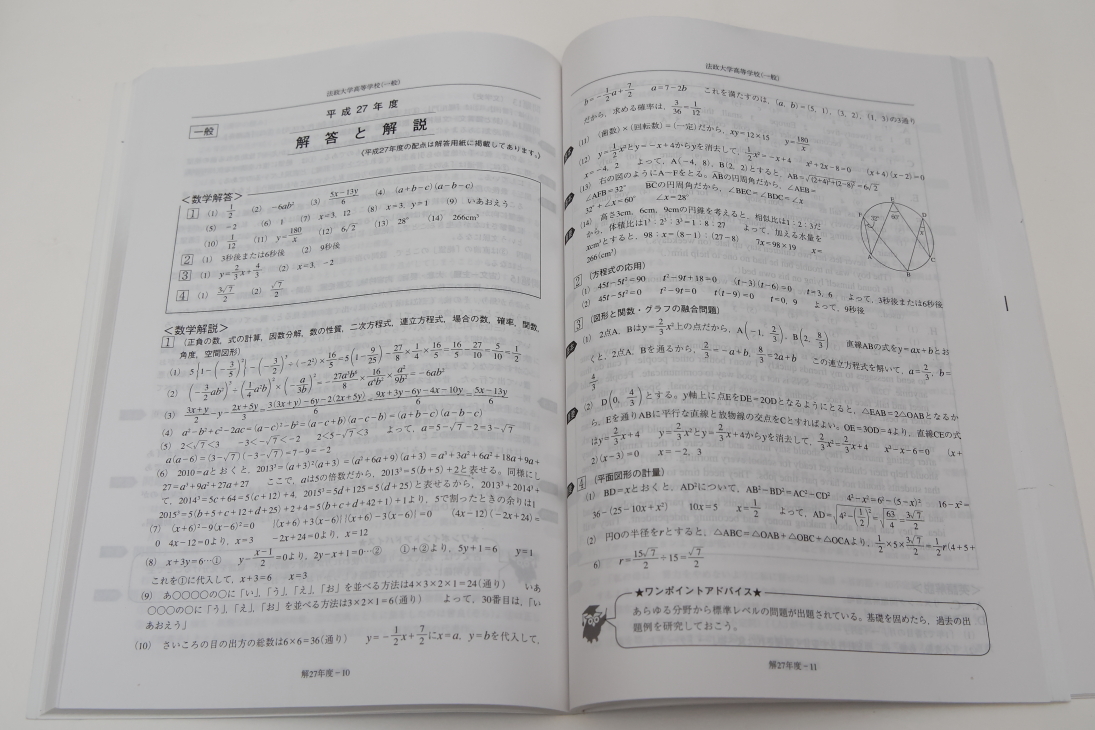 法政大学高等学校(一般)
平成27年度
一般
解答と解説
《平成27年度の配点は解答用紙に掲載してあります。》
<数学解答>
1 (1) 1/2 (2) −6ab² (3) (5x−13y)/6 (4) (a+b−c)(a−b−c)
(5) −2 (6) 1 (7) x=3, 12 (8) x=3, y=1 (9) いあおうえ
(10) 1/12 (11) y=180/x (12) 6√2 (13) 28° (14) 266cm³
2 (1) 3秒後または6秒後 (2) 9秒後
3 (1) y=2/3x+4/3 (2) x=3, −2
4 (1) 3√7/2 (2) √7/2
<数学解説>
1 (正負の数,式の計算,因数分解,数の性質,二次方程式,連立方程式,場合の数,確率,関数,
角度,空間図形)
(4) a²−b²+c²−2ac=(a−c)²−b²=(a−c+b)(a−c−b)=(a+b−c)(a−b−c)
(5) 2<√7<3 −3<−√7<−2 2<5−√7<3 よって,a=5−√7−2=3−√7
a(a−6)=(3−√7)(−3−√7)=7−9=−2
(6) 2010=aとおくと,2013³=(a+3)²(a+3)=(a²+6a+9)(a+3)=a³+3a²+6a²+18a+9a+
27=a³+9a²+27a+27 ここで,aは5の倍数だから,2013³=5(b+5)+2と表せる。同様にし
て,2014³=5c+64=5(c+12)+4,2015³=5d+125=5(d+25)と表せるから,2013³+2014³+
2015³=5(b+5+c+12+d+25)+2+4=5(b+c+d+42+1)+1より,5で割ったときの余りは1
(7) (x+6)²−9(x−6)²=0 {(x+6)+3(x−6)}{(x+6)−3(x−6)}=0 (4x−12)(−2x+24)=
0 4x−12=0より,x=3 −2x+24=0より,x=12
(8) x+3y=6…① y−(x−1)/2=0より,2y−x+1=0…② ①+②より,5y+1=6 y=1
これを①に代入して,x+3=6 x=3
(9) あ○○○○の○に「い」,「う」,「え」,「お」を並べる方法は4×3×2×1=24(通り) いあ
○○○の○に「う」,「え」,「お」を並べる方法は3×2×1=6(通り) よって,30番目は,「い
あおえう」
(10) さいころの目の出方の総数は6×6=36(通り) y=−1/2x+7/2にx=a,y=bを代入して,
解27年度−10
法政大学高等学校(一般)
b=−1/2a+7/2 a=7−2b これを満たすのは,(a, b)=(5, 1),(3, 2),(1, 3)の3通り
だから,求める確率は,3/36=1/12
(11) (歯数)×(回転数)=(一定)だから,xy=12×15 y=180/x
(12) y=1/2x²とy=−x+4からyを消去して,1/2x²=−x+4 x²+2x−8=0 (x+4)(x−2)=0
x=−4, 2 よって,A(−4, 8),B(2, 2)とすると,AB=√((2+4)²+(2−8)²)=6√2
(13) 右の図のようにA〜Fをとる。ABの円周角だから,∠AEB=
∠AFB=32° BCの円周角だから,∠BEC=∠BDC=∠x
32°+∠x=60° ∠x=28°
(14) 高さ3cm,6cm,9cmの円錐を考えると,相似比は1:2:3だ
から,体積比は1³:2³:3³=1:8:27 よって,加える水量を
xcm³とすると,98:x=(8−1):(27−8) 7x=98×19 x=
266(cm³)
F E D
32° 60°
x
A B C
2 (方程式の応用)
(1) 45t−5t²=90 t²−9t+18=0 (t−3)(t−6)=0 t=3, 6 よって,3秒後または6秒後
(2) 45t−5t²=0 t²−9t=0 t(t−9)=0 t=0, 9 よって,9秒後
3 (図形と関数・グラフの融合問題)
(1) 2点A,Bはy=2/3x²上の点だから,A(−1, 2/3),B(2, 8/3) 直線ABの式をy=ax+bとお
くと,2点A,Bを通るから,2/3=−a+b,8/3=2a+b この連立方程式を解いて,a=2/3,b=
4/3
(2) D(0, 4/3)とする。y軸上に点EをDE=2ODとなるようにとると,△EAB=2△OABとなるか
ら,Eを通りABに平行な直線と放物線の交点をCとすればよい。OE=3OD=4より,直線CEの式
はy=2/3x+4 y=2/3x²とy=2/3x+4からyを消去して,2/3x²=2/3x+4 x²−x−6=0 (x+
2)(x−3)=0 x=−2, 3
4 (平面図形の計量)
(1) BD=xとおくと,AD²について,AB²−BD²=AC²−CD² 4²−x²=6²−(5−x)² 16−x²=
36−(25−10x+x²) 10x=5 x=1/2 よって,AD=√(4²−(1/2)²)=√(63/4)=3√7/2
(2) 円Oの半径をrとすると,△ABC=△OAB+△OBC+△OCAより,1/2×5×3√7/2=1/2r(4+5+
6) r=15√7/2÷15=√7/2
★ワンポイントアドバイス★
あらゆる分野から標準レベルの問題が出題されている。基礎を固めたら,過去の出
題例を研究しておこう。
解27年度−11